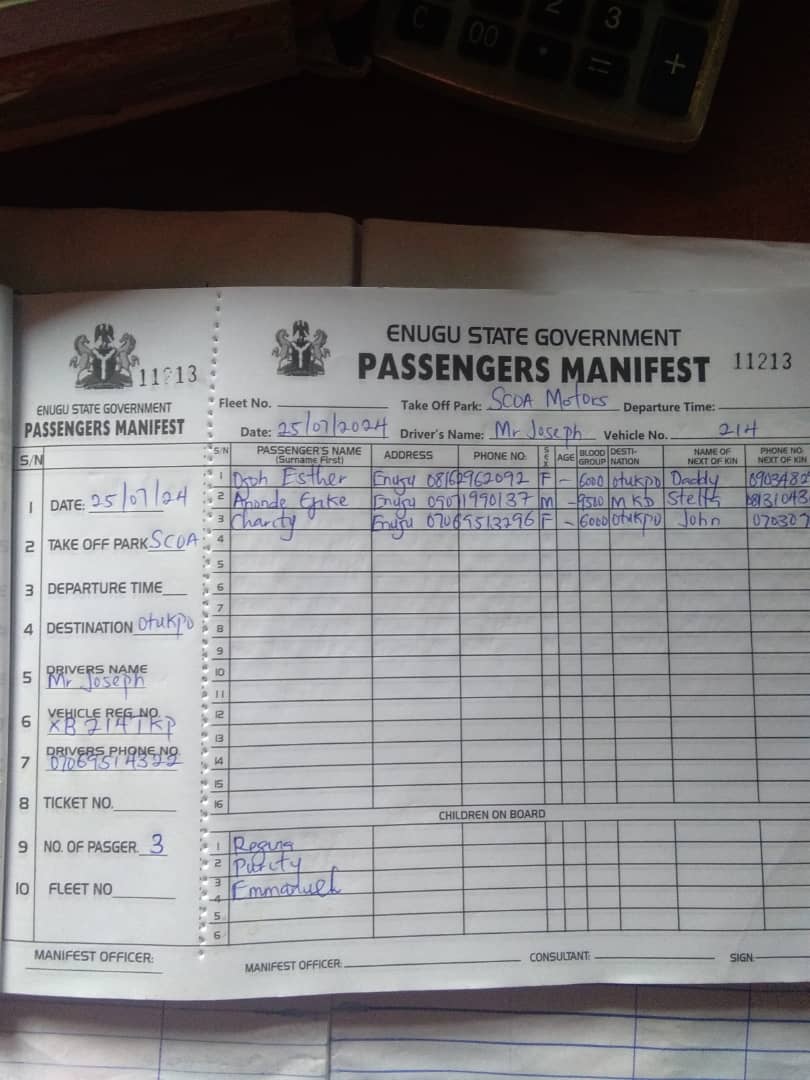 C 00 2 3 . = +
11213
ENUGU STATE GOVERNMENT
PASSENGERS MANIFEST
S/N
1 DATE: 25/07/24
2 TAKE OFF PARK SCOA
3 DEPARTURE TIME
4 DESTINATION Otukpo
5 DRIVERS NAME Mr Joseph
6 VEHICLE REG. NO.
7 DRIVERS PHONE NO. 07069514322
8 TICKET NO.
9 NO. OF PASGER. 3
10 FLEET NO
MANIFEST OFFICER:
ENUGU STATE GOVERNMENT
PASSENGERS MANIFEST 11213
Fleet No. Take Off Park: SCOA Motors Departure Time:
Date: 25/07/2024 Driver's Name: Mr Joseph Vehicle No. 214
S/N PASSENGER'S NAME (Surname First) ADDRESS PHONE NO: SEX AGE BLOOD GROUP DESTI-NATION NAME OF NEXT OF KIN PHONE NO. NEXT OF KIN
1 Esther Enugu 08162962092 F - 6000 otukpo Daddy 0903482
2 Enugu 09071990137 M - 9500 MKD Stella 08131043
3 Charity Enugu 07069513296 F - 6000 otukpo John 070307
4
5
6
7
8
9
10
11
12
13
14
15
16
CHILDREN ON BOARD
1 Regina
2 Purity
3 Emmanuel
4
5
6
MANIFEST OFFICER: CONSULTANT: SIGN: